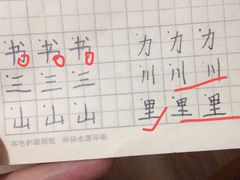 书书书 力力力
三三三 川川川
山山山 里里里
本色护眼簿纸 环保水墨印刷